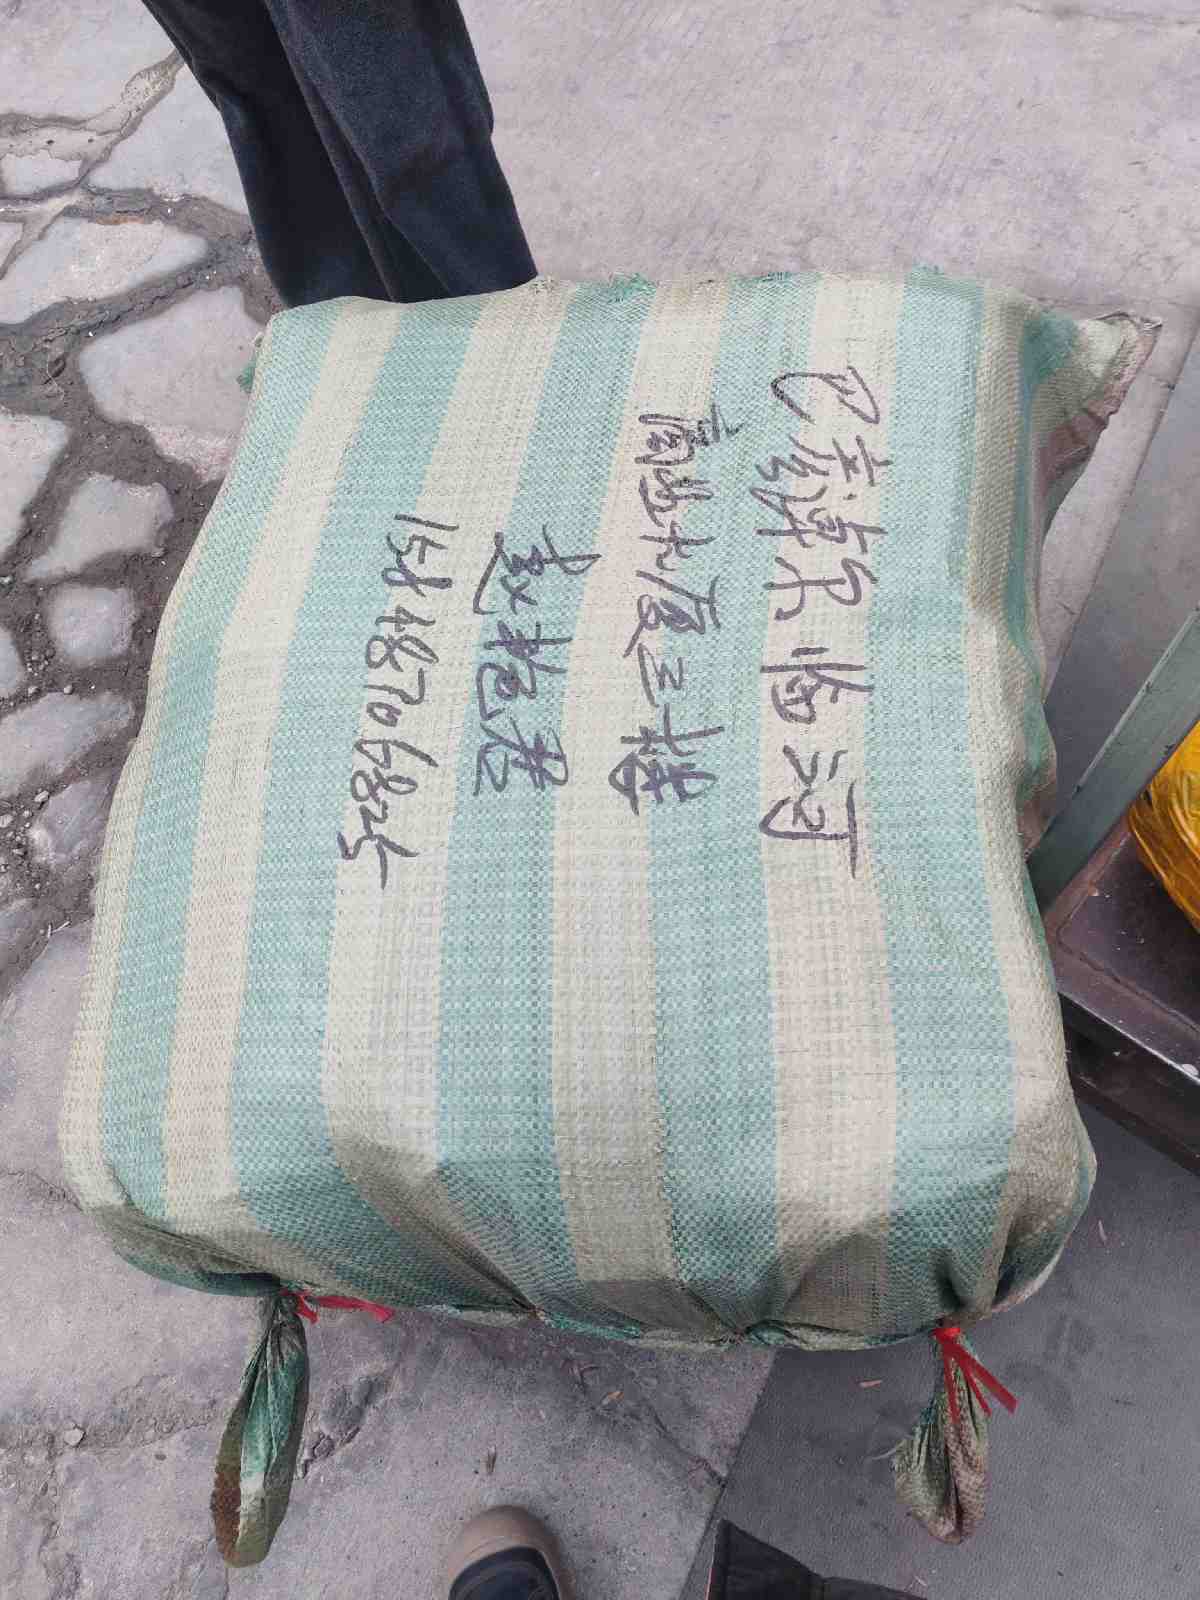 巴彦淖尔临河
商业大厦三楼
赵艳君
15848706825